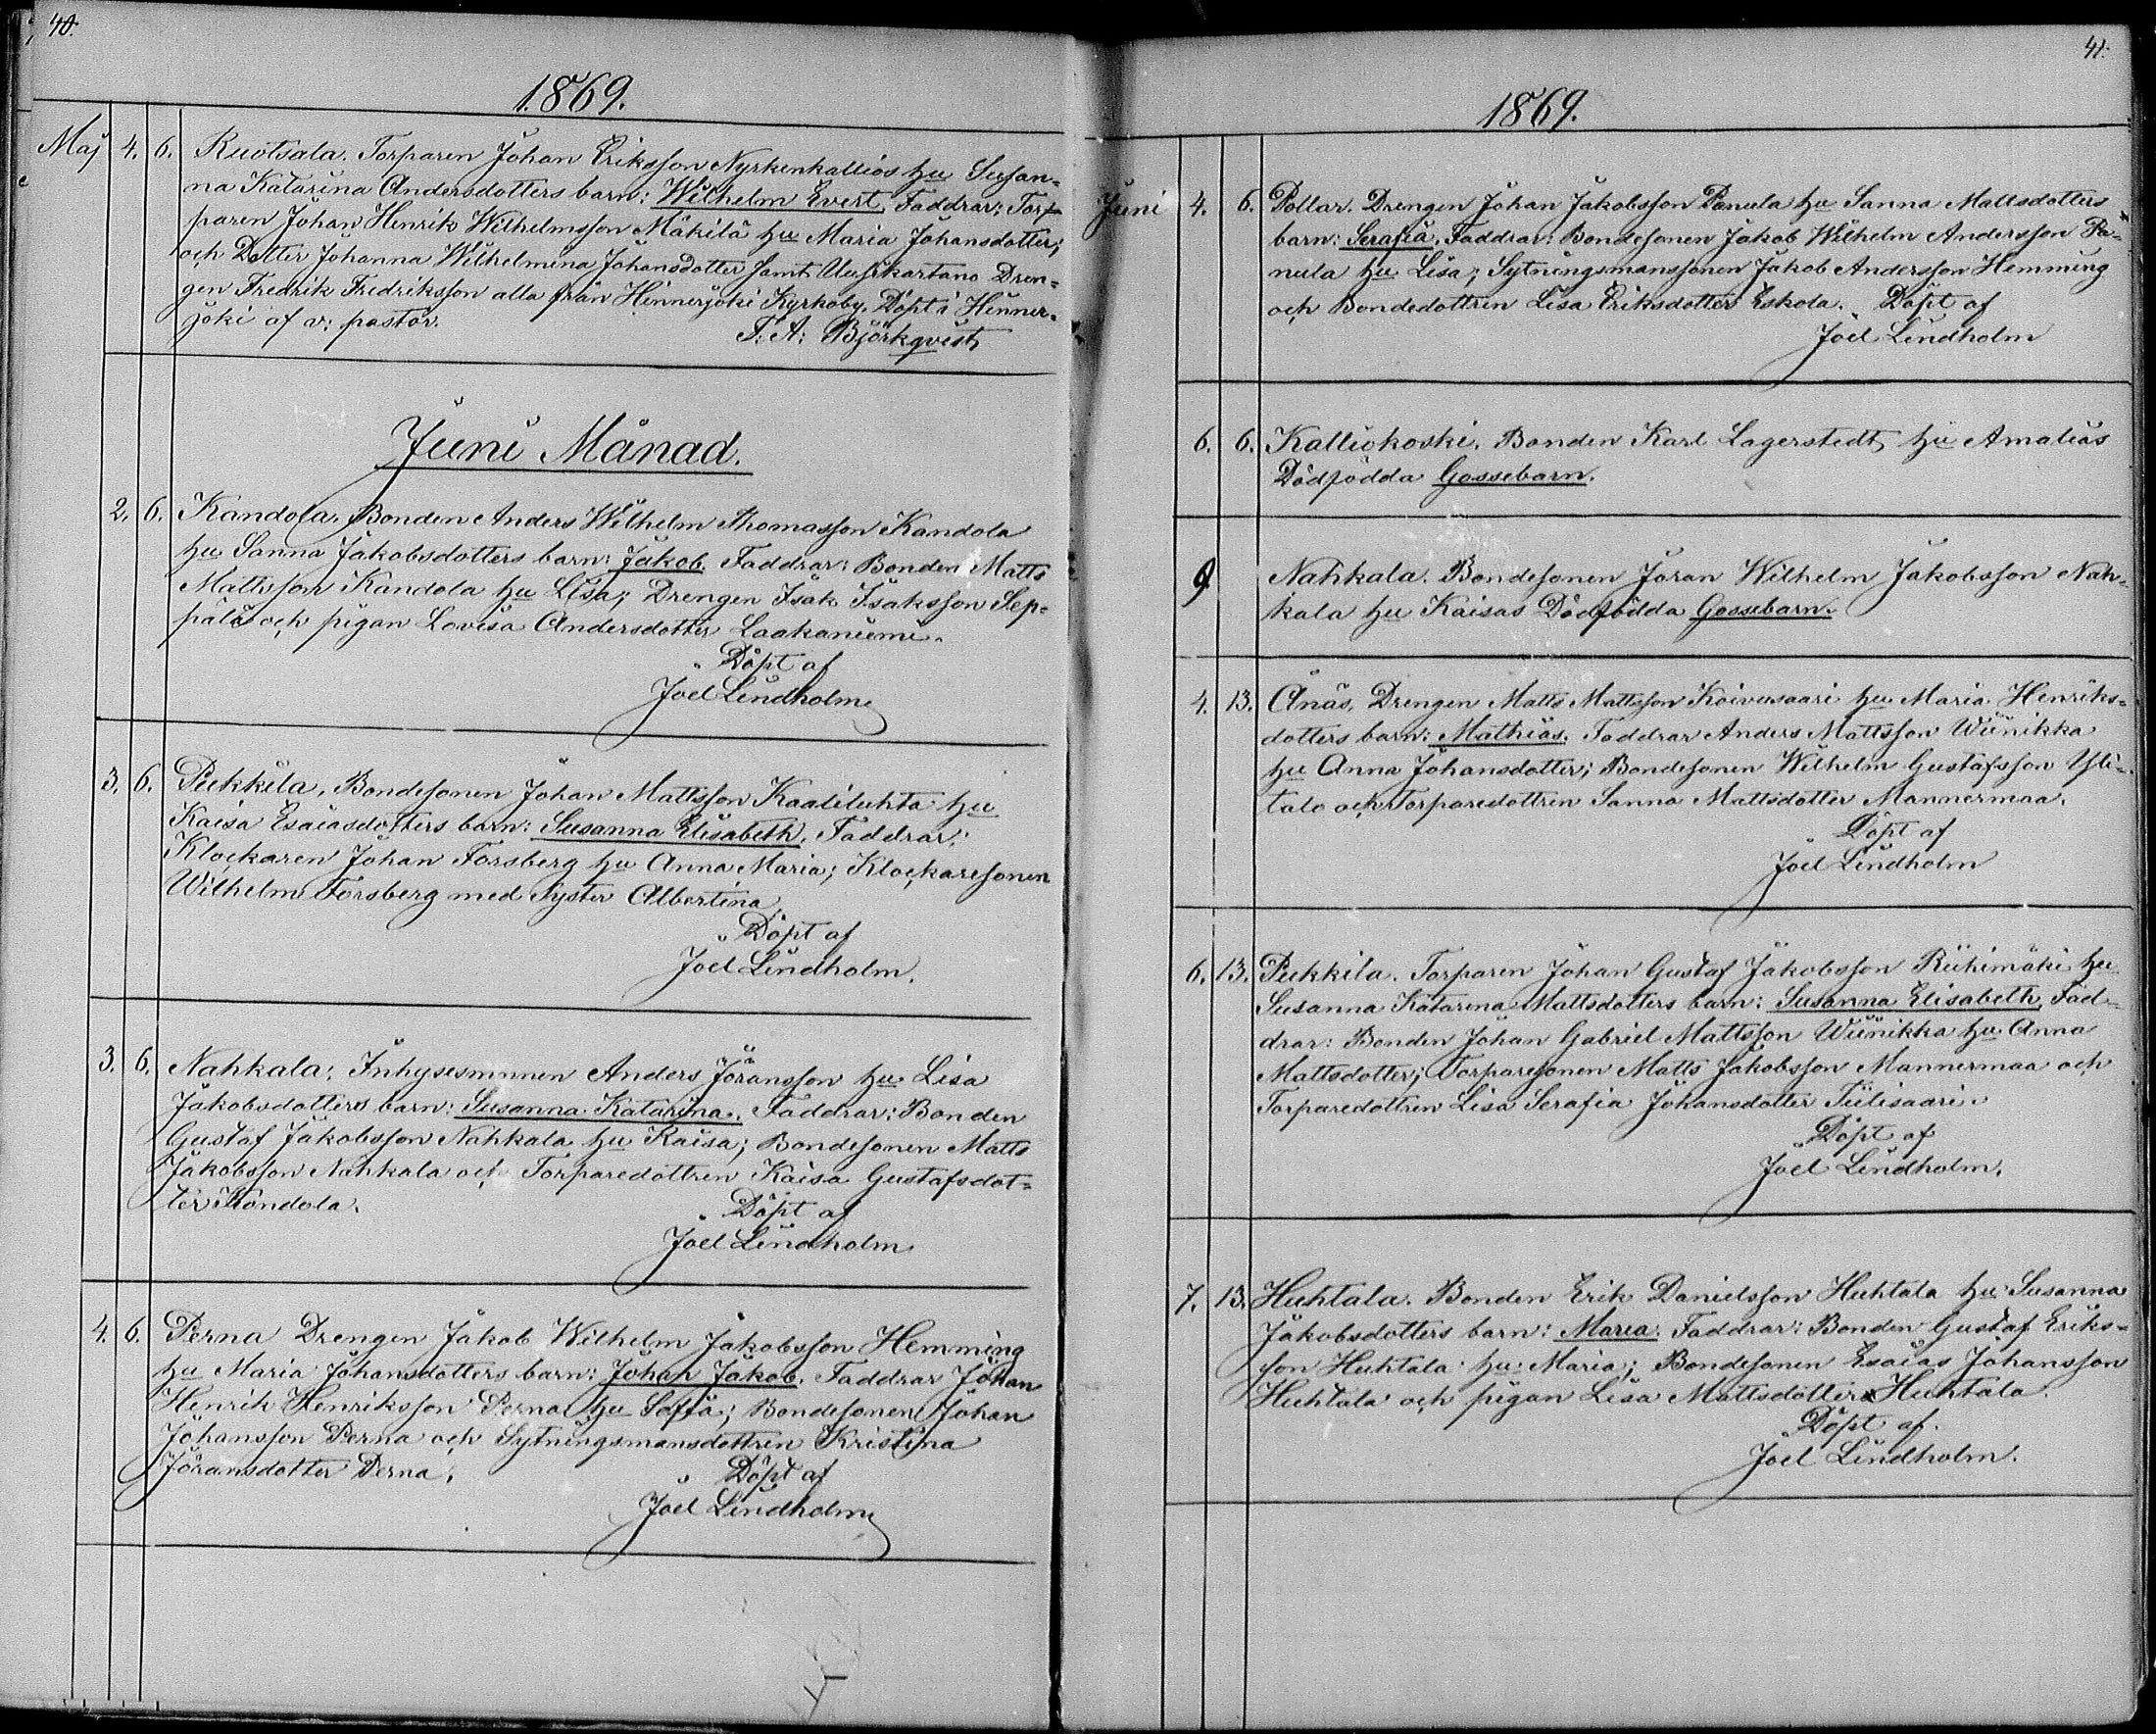 40.
1869.
Maj 4. 6. Ruotsala. Torparen Johan Eriksson Nyrkenkallios hu Susan=
na Katarina Andersdotters barn: Wilhelm Evert, Faddrar: Tor=
paren Johan Henrik Wilhelmsson Mäkilä hu Maria Johansdotter;
och Dotter Johanna Wilhelmina Johansdotter samt Uusikartano Dren=
gen Fredrik Fredriksson alla från Hinnerjoki Kyrkoby. Döpt i Hinner=
joki af v: pastor.
F: A: Björkqvist
Juni Månad.
2. 6. Kandola. Bonden Anders Wilhelm Thomasson Kandola
hu Sanna Jakobsdotters barn: Jakob. Faddrar: Bonden Matts
Mattsson Kandola hu Lisa; Drengen Isak Isaksson Sep=
pälä och pigan Lovisa Andersdotter Laakaniemi.
Döpt af
Joel Lindholm
3. 6. Pukkila. Bondesonen Johan Mattsson Kaaliluhta hu
Kaisa Esaiasdotters barn: Susanna Elisabeth. Faddrar:
Klockaren Johan Forsberg hu Anna Maria; Klockaresonen
Wilhelm Forsberg med Syster Albertina
Döpt af
Joel Lindholm.
3. 6. Nahkala. Inhysesmannen Anders Göransson hu Lisa
Jakobsdotters barn: Susanna Katarina. Faddrar: Bonden
Gustaf Jakobsson Nahkala hu Kaisa; Bondesonen Matts
Jakobsson Nahkala och Torparedottren Kaisa Gustafsdot=
ter Kondola.
Döpt af
Joel Lindholm
4. 6. Perna Drengen Jakob Wilhelm Jakobsson Hemming
hu Maria Johansdotters barn: Johan Jakob. Faddrar Johan
Henrik Henriksson Perna hu Sofia; Bondesonen Johan
Johansson Perna och Sytningsmansdottren Kristina
Göransdotter Perna.
Döpt af
Joel Lindholm
41.
1869.
Juni 4. 6. Pollar. Drengen Johan Jakobsson Panula hu Sanna Mattsdotters
barn: Serafia. Faddrar: Bondesonen Jakob Wilhelm Andersson Pa=
nula hu Lisa; Sytningsmanssonen Jakob Andersson Hemming
och Bondedottren Lisa Eriksdotter Eskola. Döpt af
Joel Lindholm
6. 6. Kalliokoski. Bonden Karl Lagerstedt hu Amalias
Dödfödda Gossebarn.
9 Nahkala. Bondesonen Göran Wilhelm Jakobsson Nah=
kala hu Kaisas Dödfödda Gossebarn.
4. 13. Ånäs, Drengen Matts Mattsson Koivusaari hu Maria Henriks=
dotters barn: Mathias. Faddrar Anders Mattsson Wiinikka
hu Anna Johansdotter; Bondesonen Wilhelm Gustafsson Yli=
talo och Torparedottren Sanna Mattsdotter Mannermaa.
Döpt af
Joel Lindholm
6. 13. Pukkila. Torparen Johan Gustaf Jakobsson Riihimäki hu
Susanna Katarina Mattsdotters barn: Susanna Elisabeth, Fad=
drar: Bonden Johan Gabriel Mattsson Wiinikka hu Anna
Mattsdotter; Torparesonen Matts Jakobsson Mannermaa och
Torparedottren Lisa Serafia Johansdotter Tiilisaari.
Döpt af
Joel Lindholm.
7. 13. Huhtala. Bonden Erik Danielsson Huhtala hu Susanna
Jakobsdotters barn: Maria. Faddrar: Bonden Gustaf Eriks=
son Huhtala hu: Maria; Bondesonen Esaias Johansson
Huhtala och pigan Lisa Mattsdotter Huhtala.
Döpt af.
Joel Lindholm.